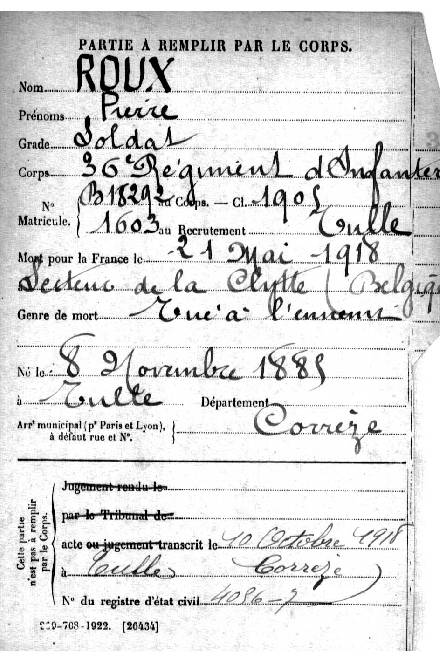 PARTIE À REMPLIR PAR LE CORPS.
Nom ROUX
Prénoms Pierre
Grade Soldat
Corps 36e Régiment d'Infanter
N° B18292 au Corps. — Cl. 1905
Matricule. 1603 au Recrutement Tulle
Mort pour la France le 21 Mai 1918
Secteur de la Clytte (Belgiq
Genre de mort Tué à l'ennemi
Né le 8 Novembre 1885
à Tulle Département Corrèze
Arrt municipal (pr Paris et Lyon),
à défaut rue et N°.
Cette partie
n'est pas à remplir
par le Corps.
Jugement rendu le
par le Tribunal de
acte ou jugement transcrit le 10 Octobre 1918
à Tulle Corrèze
N° du registre d'état civil 4096-7
-708-1922. [26434]